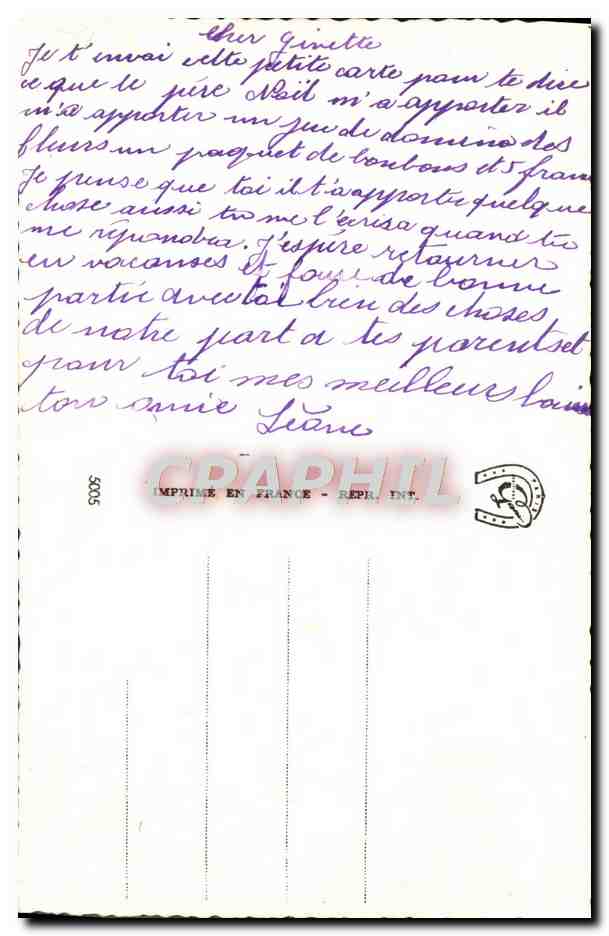 cher ginette
Je t'envoi cette petite carte pour te dire
ce que le père Noël m'a apporter il
m'a apporter un jeu de domino des
fleurs un paquet de bonbons et 5 franc
Je pense que toi il t'a apporter quelque
chose aussi tu me l'écrira quand tu
me répondra. J'espère retourner
en vacanses et faire de bonne
partie avec toi bien des choses
de notre part a tes parents et
pour toi mes meilleurs
ton amie Léane
5005
CPAPHIL
IMPRIMÉ EN FRANCE - REPR. INT.
PARIS